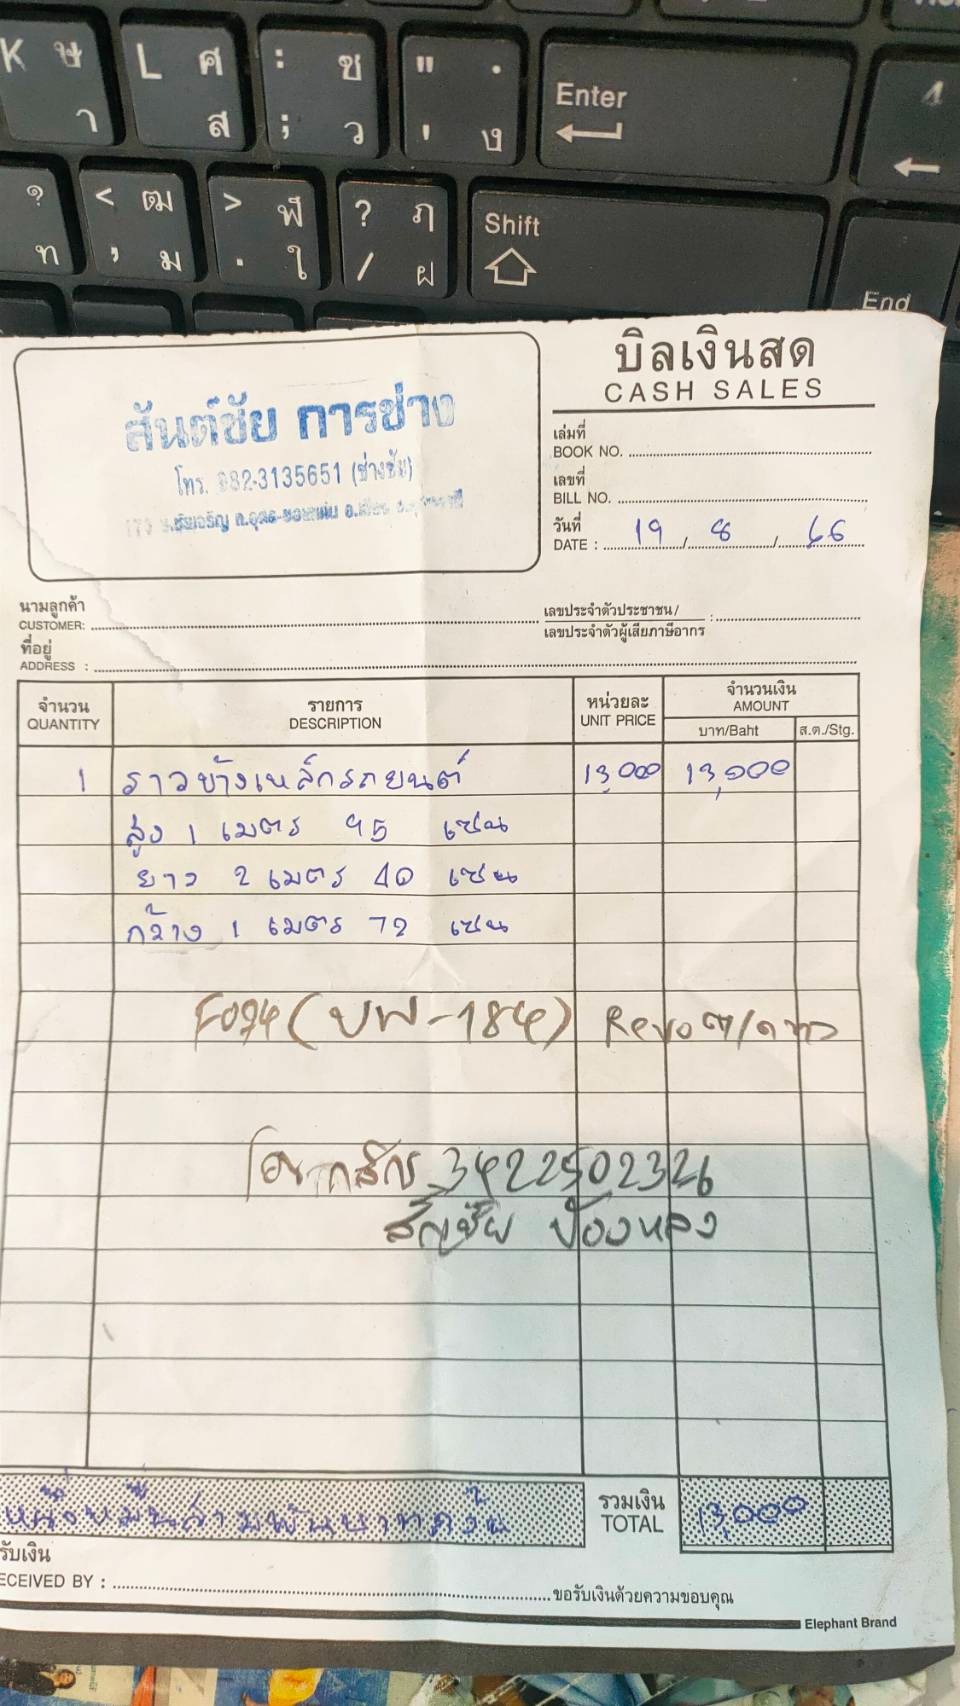 K ษ า
L ศ ส
: ซ ; ว
" . ' ง
Enter
4
๑ ท
< ฒ , ม
> ฬ . ใ
? ฦ / ฝ
Shift
End
บิลเงินสด
CASH SALES
สันต์ชัย การช่าง
โทร. 082-3135651 (ช่างชัย)
เล่มที่
BOOK NO.
เลขที่
BILL NO.
วันที่
DATE : 19 / 8 / 66
นามลูกค้า
CUSTOMER:
เลขประจำตัวประชาชน/
เลขประจำตัวผู้เสียภาษีอากร :
ที่อยู่
ADDRESS :
จำนวน รายการ หน่วยละ จำนวนเงิน
QUANTITY DESCRIPTION UNIT PRICE AMOUNT
บาท/Baht ส.ต./Stg.
1 ราวข้างเหล็กรถยนต์ 13,000 13,000
สูง 1 เมตร 95 เซน
ยาว 2 เมตร 40 เซน
กว้าง 1 เมตร 72 เซน
(บพ-184) Revo
กสิกร 3422502326
หนึ่งหมื่นสามพันบาทถ้วน รวมเงิน 13,000
TOTAL
รับเงิน
ECEIVED BY : ขอรับเงินด้วยความขอบคุณ
Elephant Brand